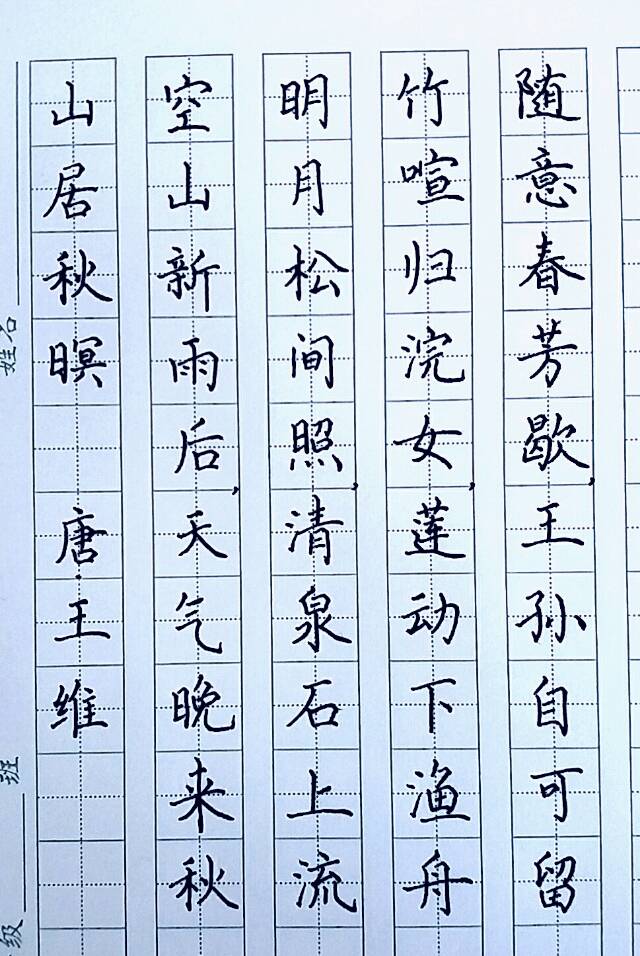 山居秋暝 唐·王维
空山新雨后,天气晚来秋
明月松间照,清泉石上流
竹喧归浣女,莲动下渔舟
随意春芳歇,王孙自可留
姓名
班
级